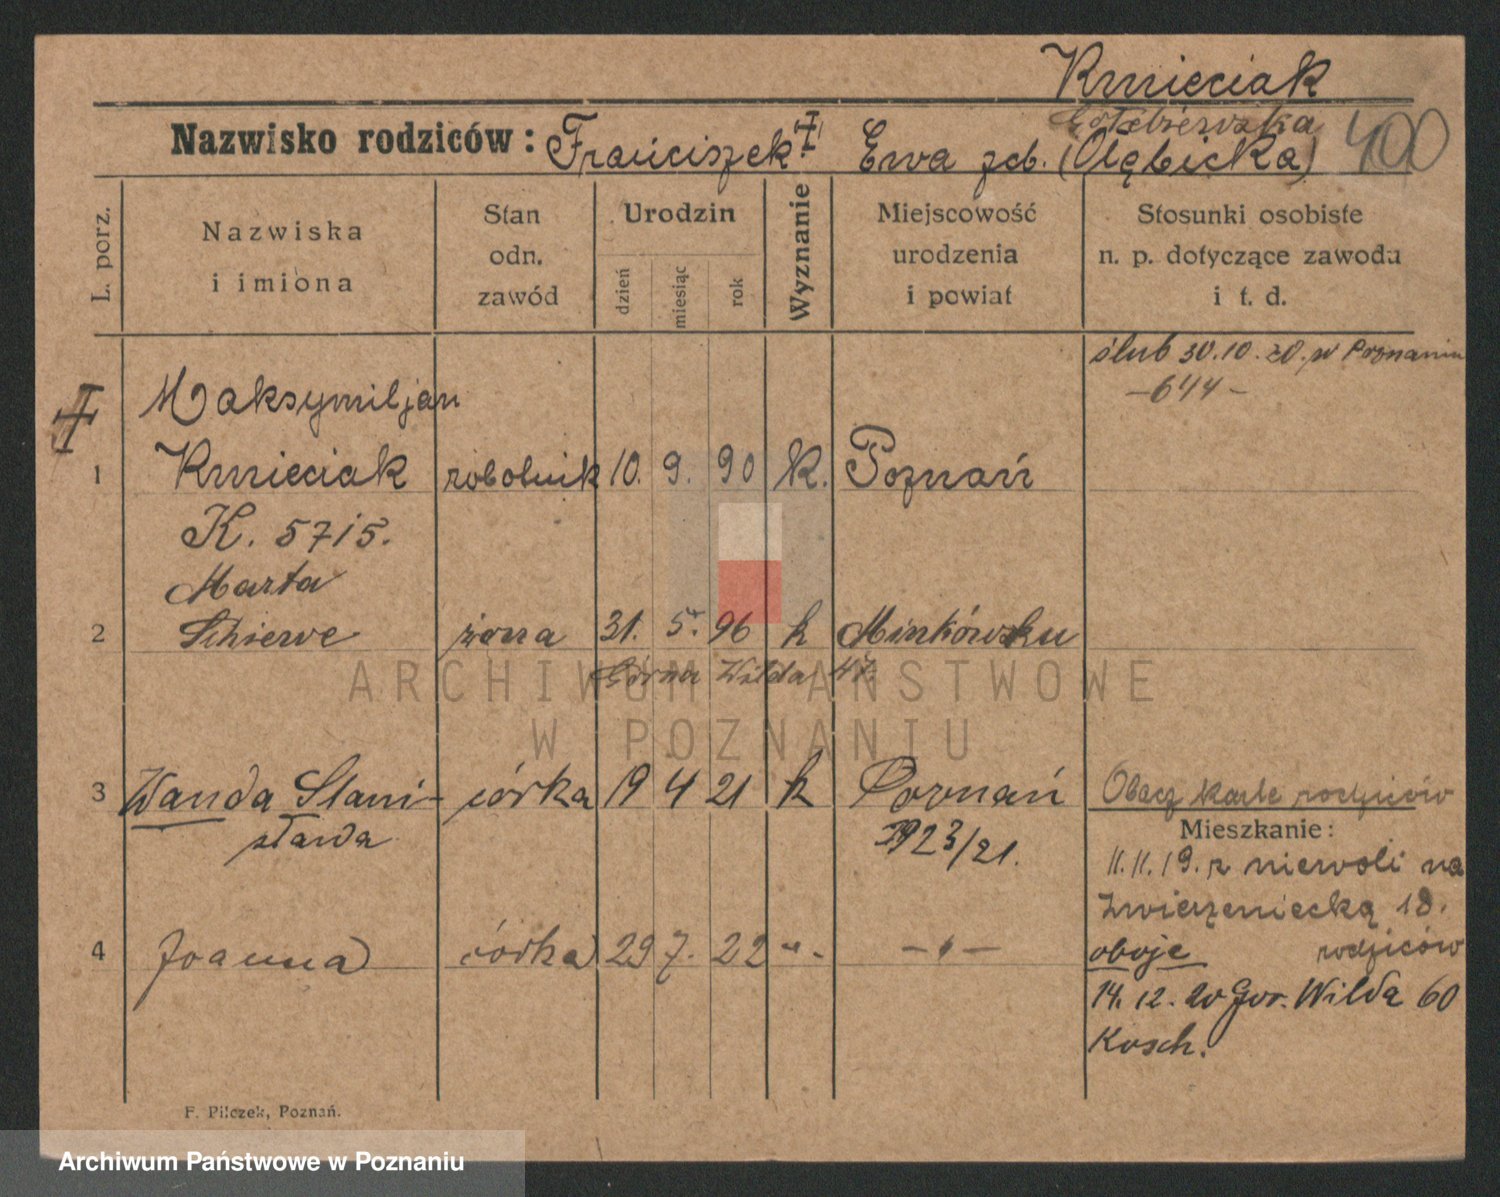 Kmieciak
Nazwisko rodziców: Franciszek Ewa zeb. (Olębicka) 400
L. porz.
Nazwiska
i imiona
Stan
odn.
zawód
Urodzin
dzień
miesiąc
rok
Wyznanie
Miejscowość
urodzenia
i powiat
Stosunki osobiste
n. p. dotyczące zawodu
i t. d.
ślub 30.10.20. w Poznaniu
-644-
Maksymiljan
1 Kmieciak robotnik 10. 9. 90 K. Poznań
K. 5715.
Marta
2 Schiewe żona 31. 5. 96 k
Górna Wilda 47.
3 Wanda Stani- córka 19 4 21 k Poznań Obacz kartę rodziców
sława 1923/21.
Mieszkanie:
11.11.19. z niewoli na
Zwierzyniecką 18.
4 Joanna córka 29 7. 22 -"- -"- oboje rodziców
14. 12. 20 Gór. Wilda 60
Kosch.
F. Pilczek, Poznań.
ARCHIWUM PAŃSTWOWE
W POZNANIU
Archiwum Państwowe w Poznaniu